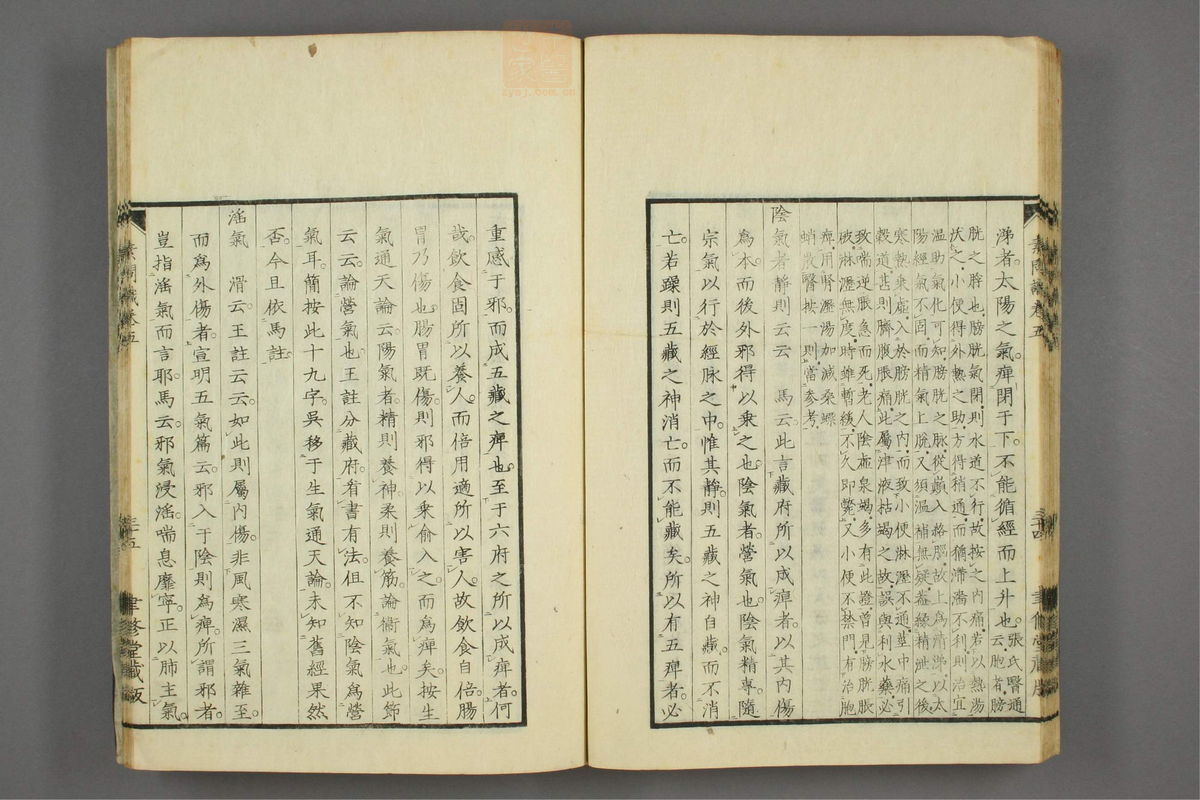 涕者太陽之氣。痺閉于下。不能循經而上升也。張氏醫通云。胞者。膀
胱之脬也。膀胱氣閉。則水道不行。故按之內痛。若以熱湯
沃之。小便得外熱之助。方得稍通。而猶滯濇不利。則治宜
溫助氣化可知。膀胱之脉。從巔入絡腦。故上為清涕。以太
陽經氣不固。而精氣上脫。又須溫補無疑。蓋
寒熱乘虛入於膀胱之內。而致小便淋瀝不通。莖中痛引
穀道。甚則臍腹脹痛。此屬津液枯竭之故。誤與利水藥。必
致喘逆脹急而死。老人陰虛泉竭。多有此證。曾見膀胱脹
破。淋瀝無度。時雖暫緩。不久即斃。又小便不禁門。有治胞
痺用腎瀝湯加減桑螵
蛸散醫按一則。當參考。
陰氣者靜則云云 馬云。此言藏府所以成痺者。以其內傷
為本。而後外邪得以乘之也。陰氣者。營氣也。陰氣精專。隨
宗氣以行於經脉之中。惟其靜。則五藏之神自藏。而不消
亡。若躁則五藏之神消亡。而不能藏矣。所以有五痺者。必
素問識卷五
三十四
聿修堂藏版
重感于邪。而成五藏之痺也。至于六府之所以成痺者。何
哉。飲食固所以養人。而倍用適所以害人。故飲食自倍。腸
胃乃傷也。腸胃既傷。則邪得以乘偷入之。而為痺矣。按生
氣通天論云。陽氣者。精則養神。柔則養筋。論衞氣也。此節
云云。論營氣也。王註分藏府看書有法。但不知陰氣為營
氣耳。簡按此十九字。吳移于生氣通天論。未知舊經果然
否。今且依馬註。
淫氣 滑云。王註云云。如此則屬內傷。非風寒濕三氣雜至。
而為外傷者。宣明五氣篇云。邪入于陰則為痺。所謂邪者。
豈指淫氣而言耶。馬云。邪氣浸淫。喘息靡寧。正以肺主氣。
素問識卷五
三十五
聿修堂藏版